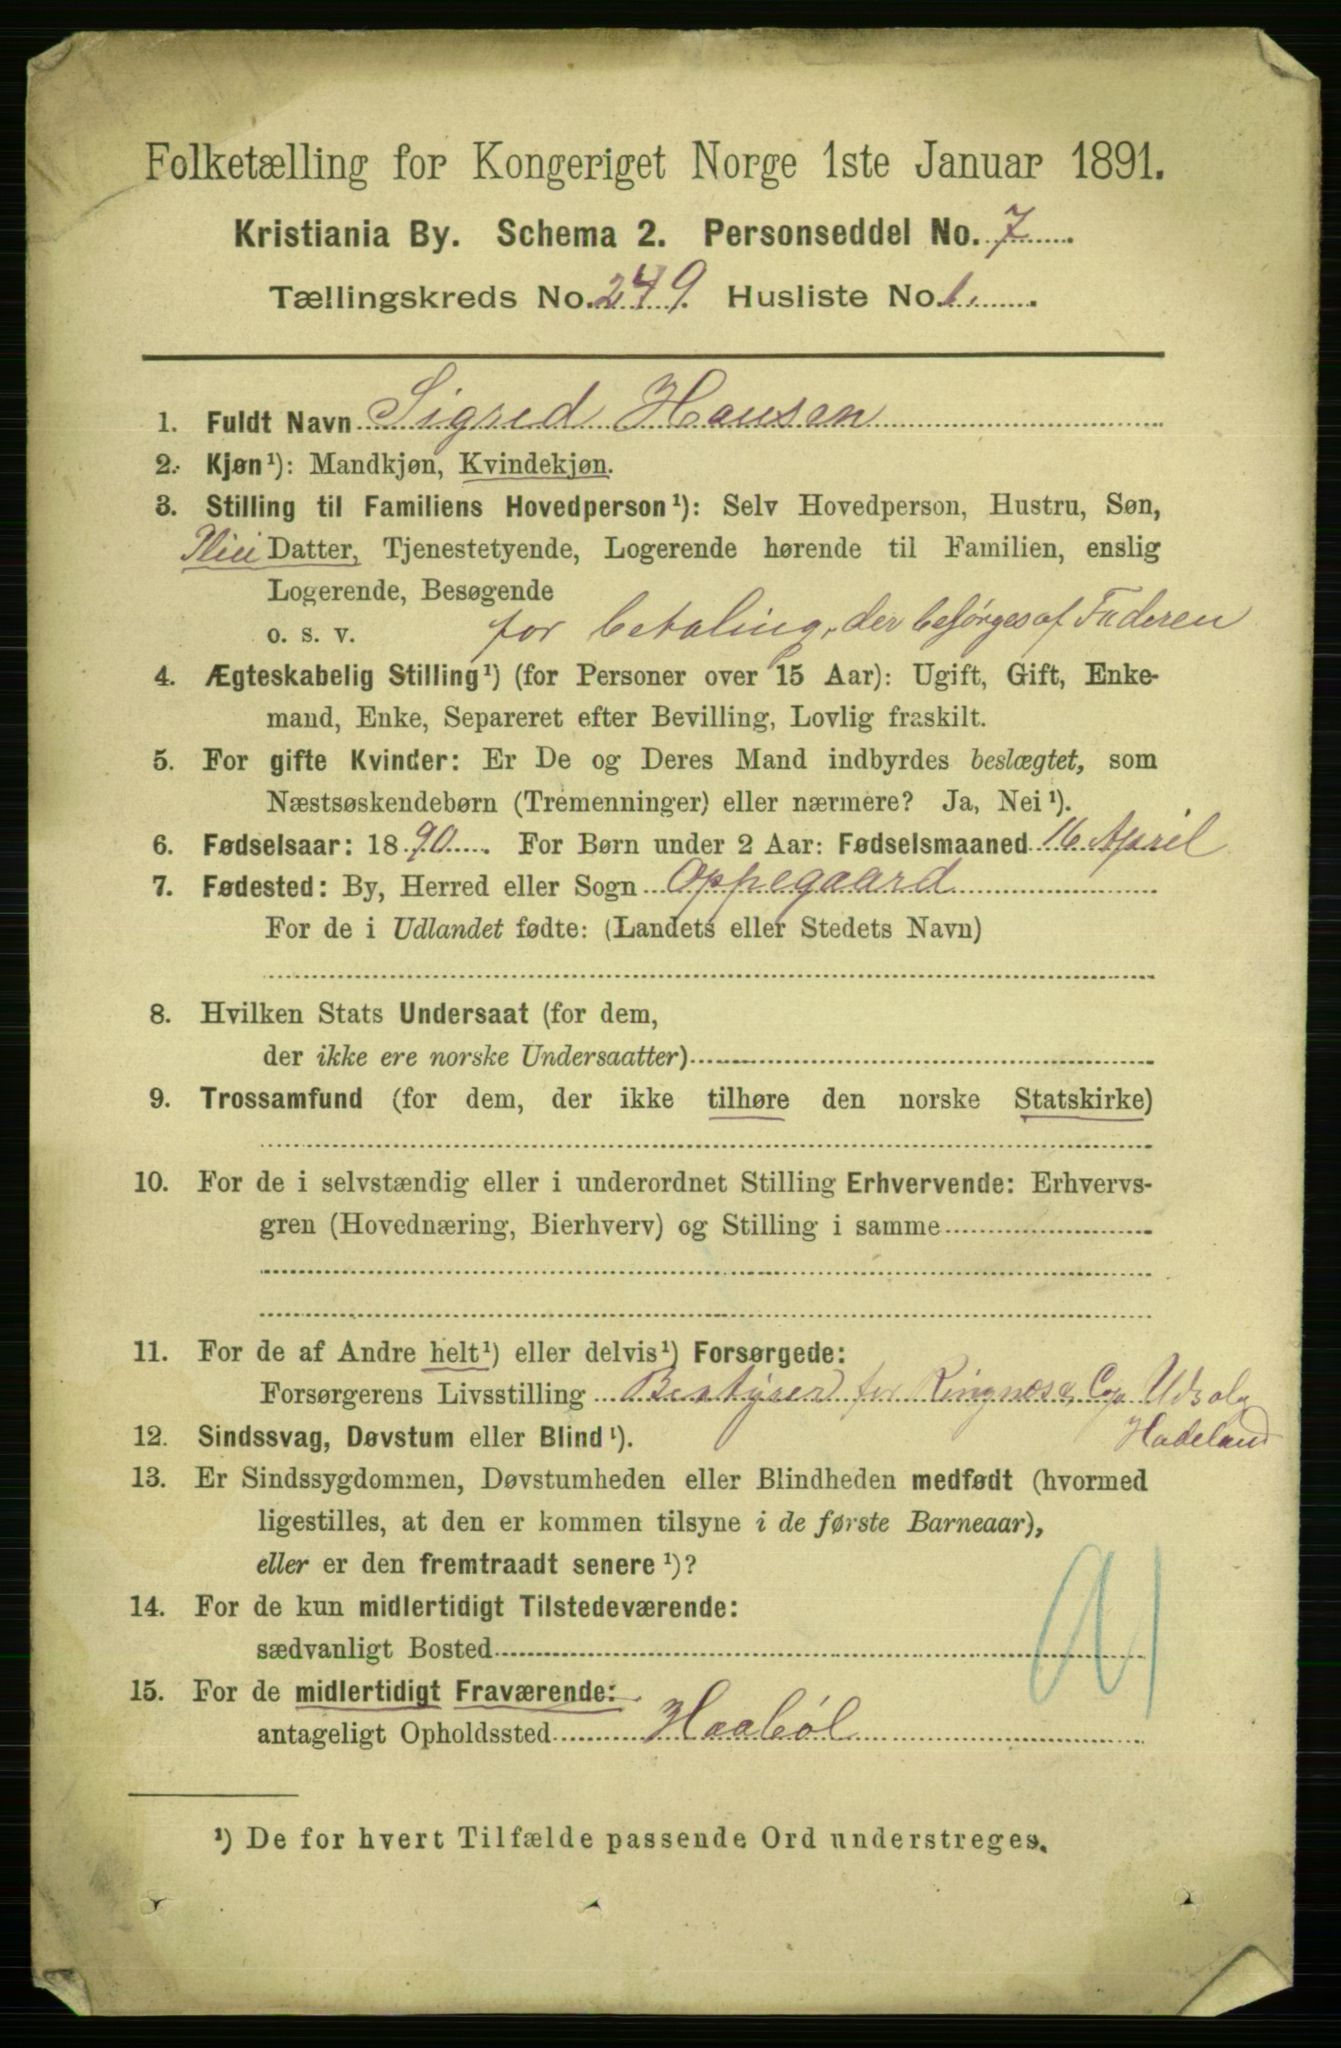 Folketælling for Kongeriget Norge 1ste Januar 1891.
Kristiania By. Schema 2. Personseddel No. 7
Tællingskreds No. 249. Husliste No. 1.
1. Fuldt Navn Sigred Hansen
2. Kjøn¹): Mandkjøn, Kvindekjøn.
3. Stilling til Familiens Hovedperson¹): Selv Hovedperson, Hustru, Søn,
Pleie Datter, Tjenestetyende, Logerende hørende til Familien, enslig
Logerende, Besøgende
o. s. v. for betaling, der besørges af Faderen
4. Ægteskabelig Stilling¹) (for Personer over 15 Aar): Ugift, Gift, Enke-
mand, Enke, Separeret efter Bevilling, Lovlig fraskilt.
5. For gifte Kvinder: Er De og Deres Mand indbyrdes beslægtet, som
Næstsøskendebørn (Tremenninger) eller nærmere? Ja, Nei¹).
6. Fødselsaar: 1890. For Børn under 2 Aar: Fødselsmaaned 16 April
7. Fødested: By, Herred eller Sogn Oppegaard
For de i Udlandet fødte: (Landets eller Stedets Navn)
8. Hvilken Stats Undersaat (for dem,
der ikke ere norske Undersaatter)
9. Trossamfund (for dem, der ikke tilhøre den norske Statskirke)
10. For de i selvstændig eller i underordnet Stilling Erhvervende: Erhvervs-
gren (Hovednæring, Bierhverv) og Stilling i samme
11. For de af Andre helt¹) eller delvis¹) Forsørgede:
Forsørgerens Livsstilling Bestyrer for Ringnes & Cop Udsalg
Hadeland
12. Sindssvag, Døvstum eller Blind¹).
13. Er Sindssygdommen, Døvstumheden eller Blindheden medfødt (hvormed
ligestilles, at den er kommen tilsyne i de første Barneaar),
eller er den fremtraadt senere¹)?
14. For de kun midlertidigt Tilstedeværende:
sædvanligt Bosted
15. For de midlertidigt Fraværende:
antageligt Opholdssted Haabøl
¹) De for hvert Tilfælde passende Ord understreges.